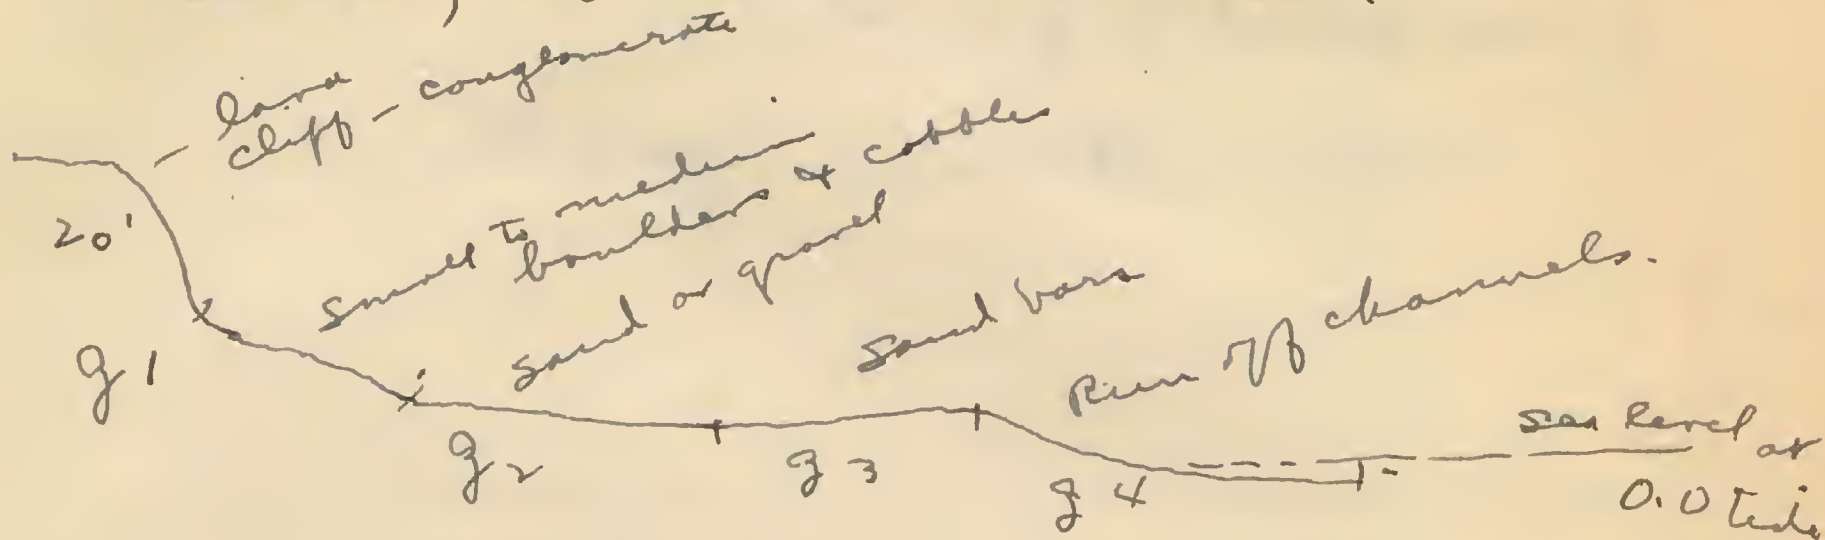 lava
cliff - conglomerate
20'
small to medium
boulders & cobbles
g 1
sand or gravel
g 2
sand bars
g 3
Run off channels.
g 4
sea level at
0.0 tide